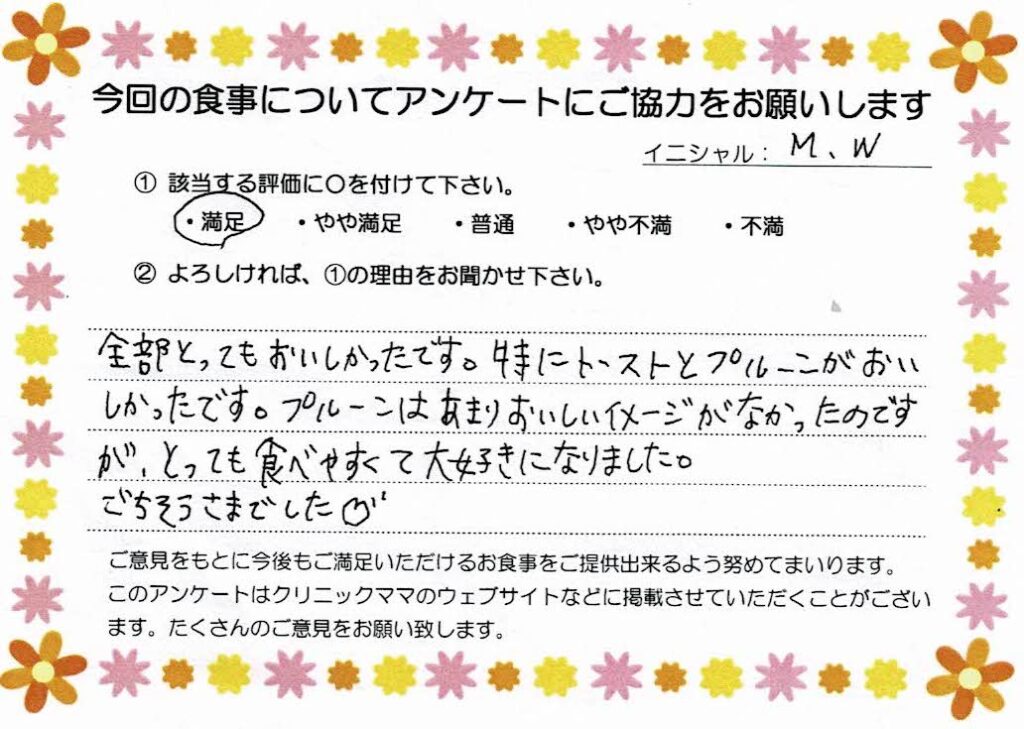 今回の食事についてアンケートにご協力をお願いします
イニシャル： M、W
① 該当する評価に〇を付けて下さい。
・満足 ・やや満足 ・普通 ・やや不満 ・不満
② よろしければ、①の理由をお聞かせ下さい。
全部とってもおいしかったです。特にトーストとプルーンがおい
しかったです。プルーンはあまりおいしいイメージがなかったのです
が、とっても食べやすくて大好きになりました。
ごちそうさまでした♡
ご意見をもとに今後もご満足いただけるお食事をご提供出来るよう努めてまいります。
このアンケートはクリニックママのウェブサイトなどに掲載させていただくことがござい
ます。たくさんのご意見をお願い致します。